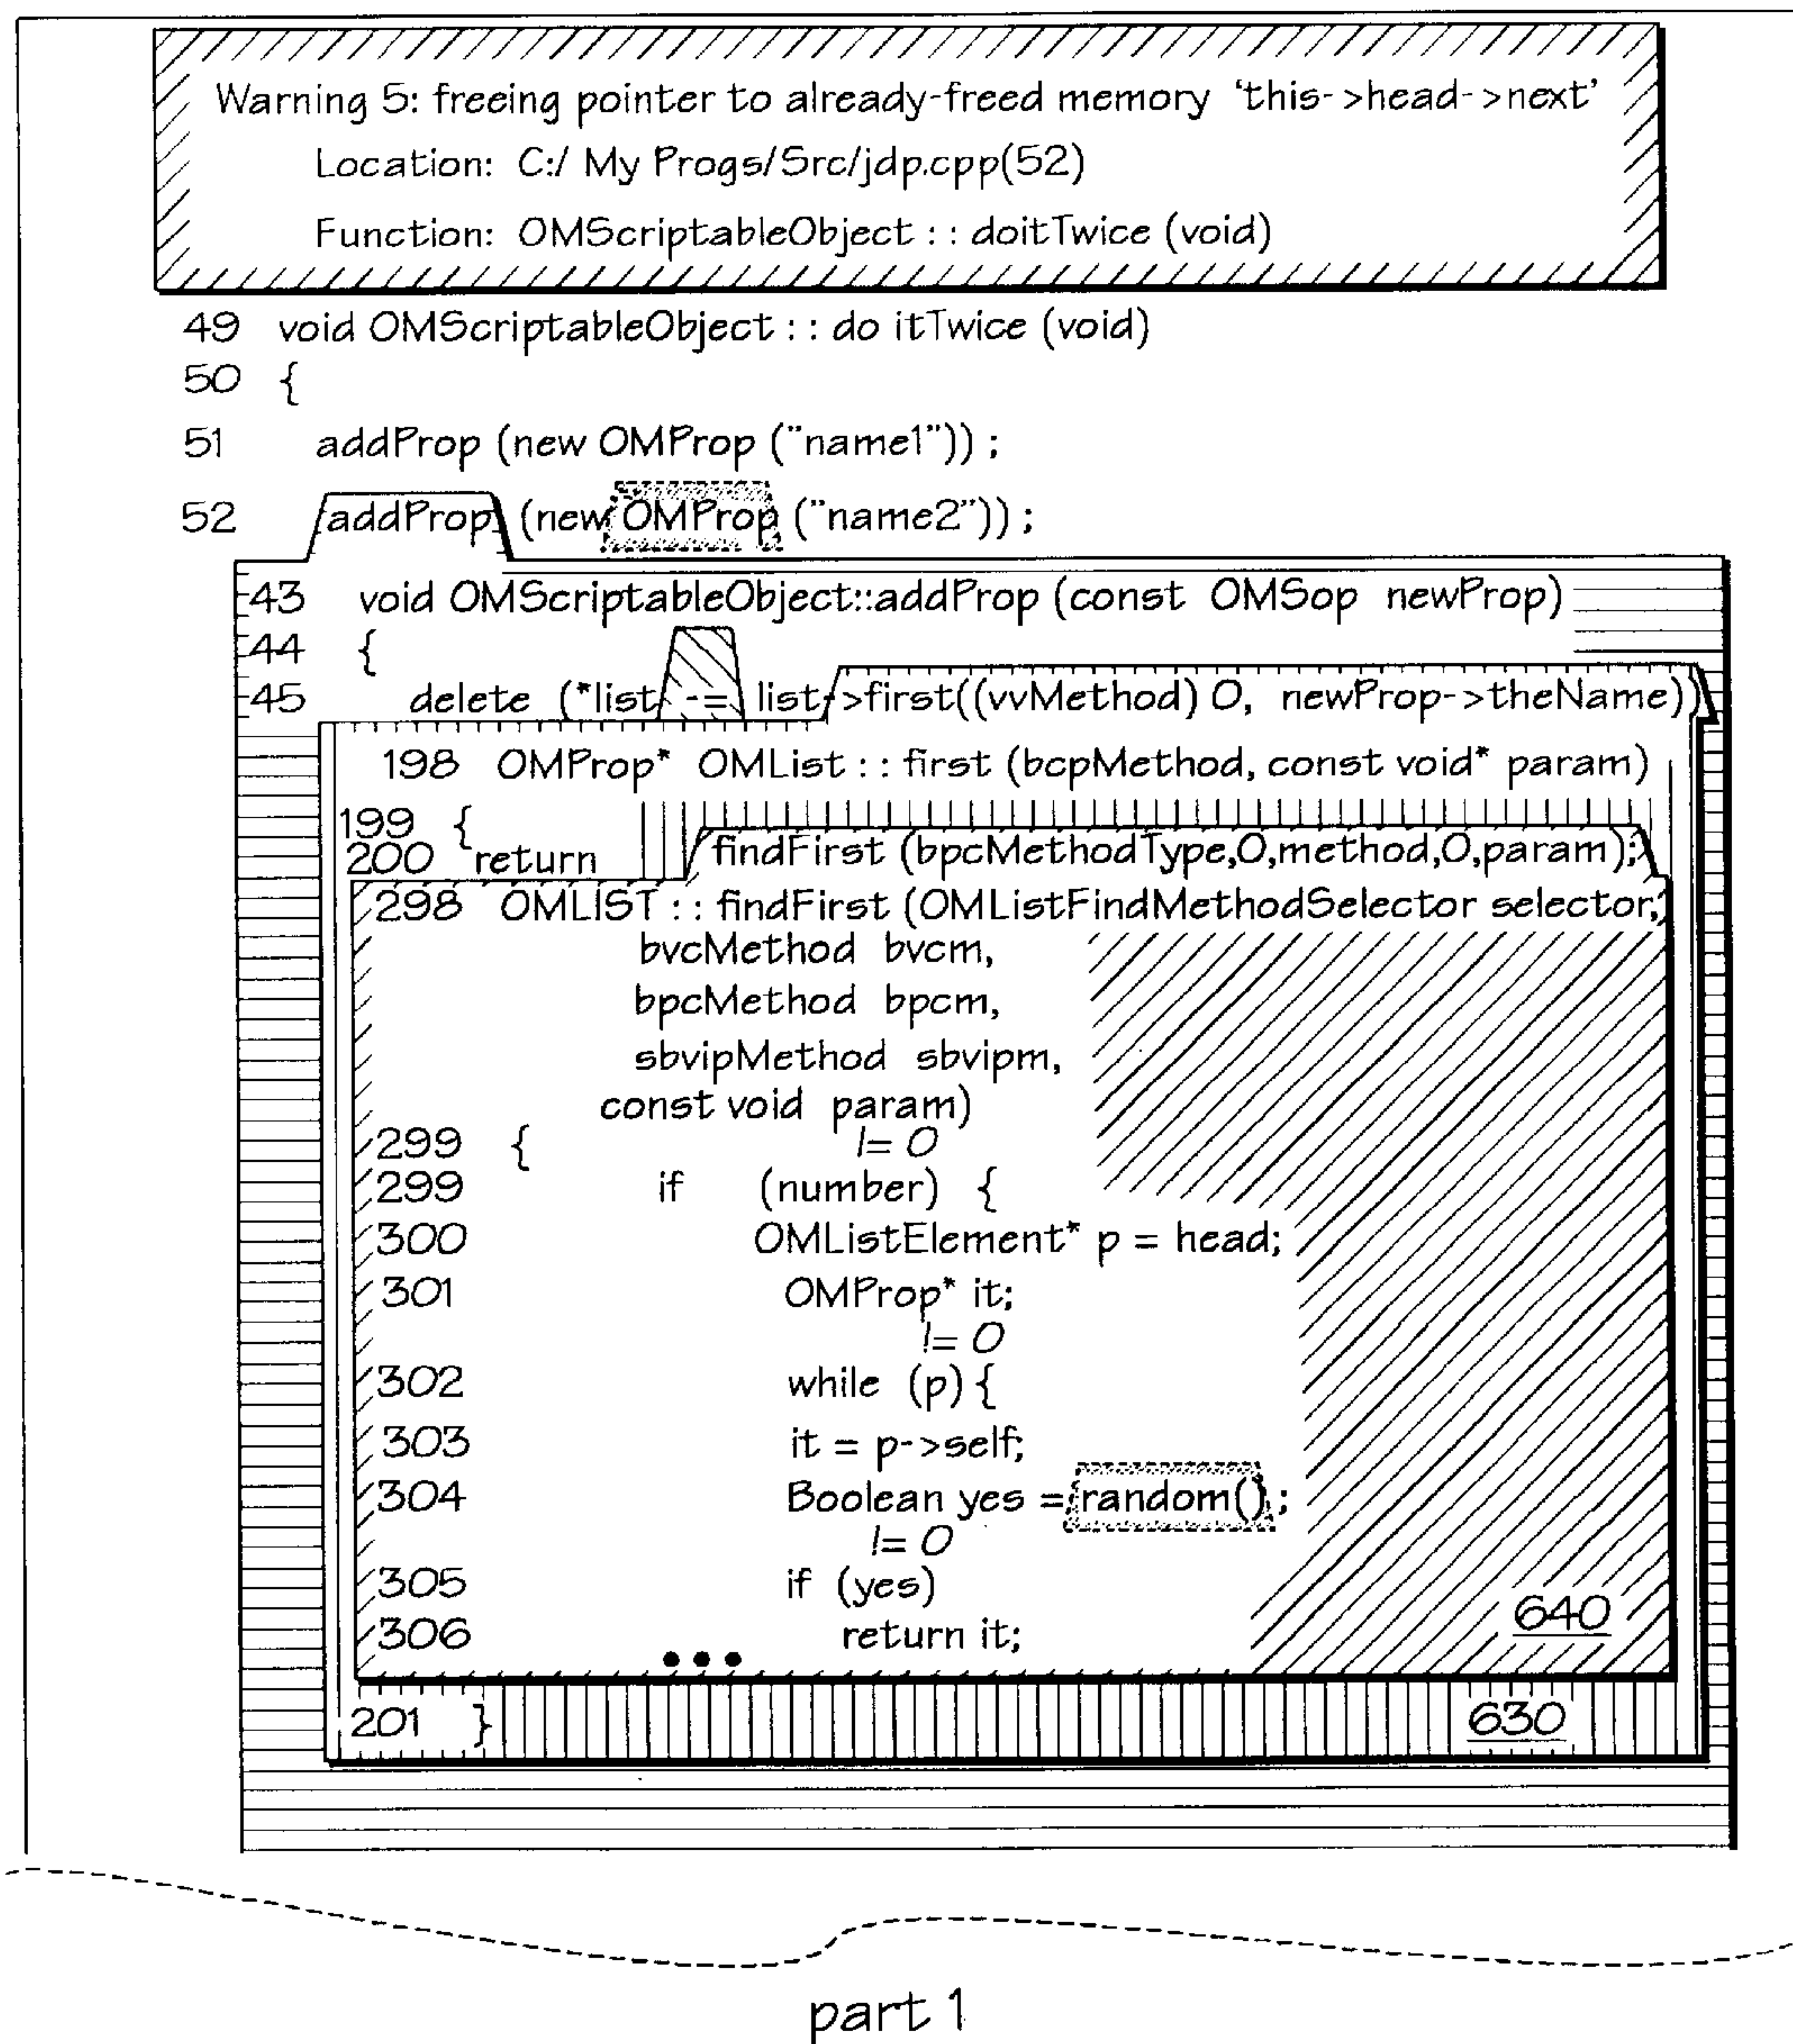 Warning 5: freeing pointer to already-freed memory 'this->head->next'
Location: C:/ My Progs/Src/jdp.cpp(52)
Function: OMScriptableObject : : doitTwice (void)
49 void OMScriptableObject : : do itTwice (void)
50 {
51 addProp (new OMProp ("name1")) ;
52 addProp (new OMProp ("name2")) ;
43 void OMScriptableObject::addProp (const OMSop newProp)
44 {
45 delete (*list -= list->first((vvMethod) 0, newProp->theName))
198 OMProp* OMList : : first (bcpMethod, const void* param)
199 {
200 return findFirst (bpcMethodType,0,method,0,param);
298 OMLIST : : findFirst (OMListFindMethodSelector selector,
bvcMethod bvcm,
bpcMethod bpcm,
sbvipMethod sbvipm,
const void param)
299 { != 0
299 if (number) {
300 OMListElement* p = head;
301 OMProp* it;
!= 0
302 while (p) {
303 it = p->self;
304 Boolean yes = random() ;
!= 0
305 if (yes)
306 return it;
640
•••
201 }
630
part 1